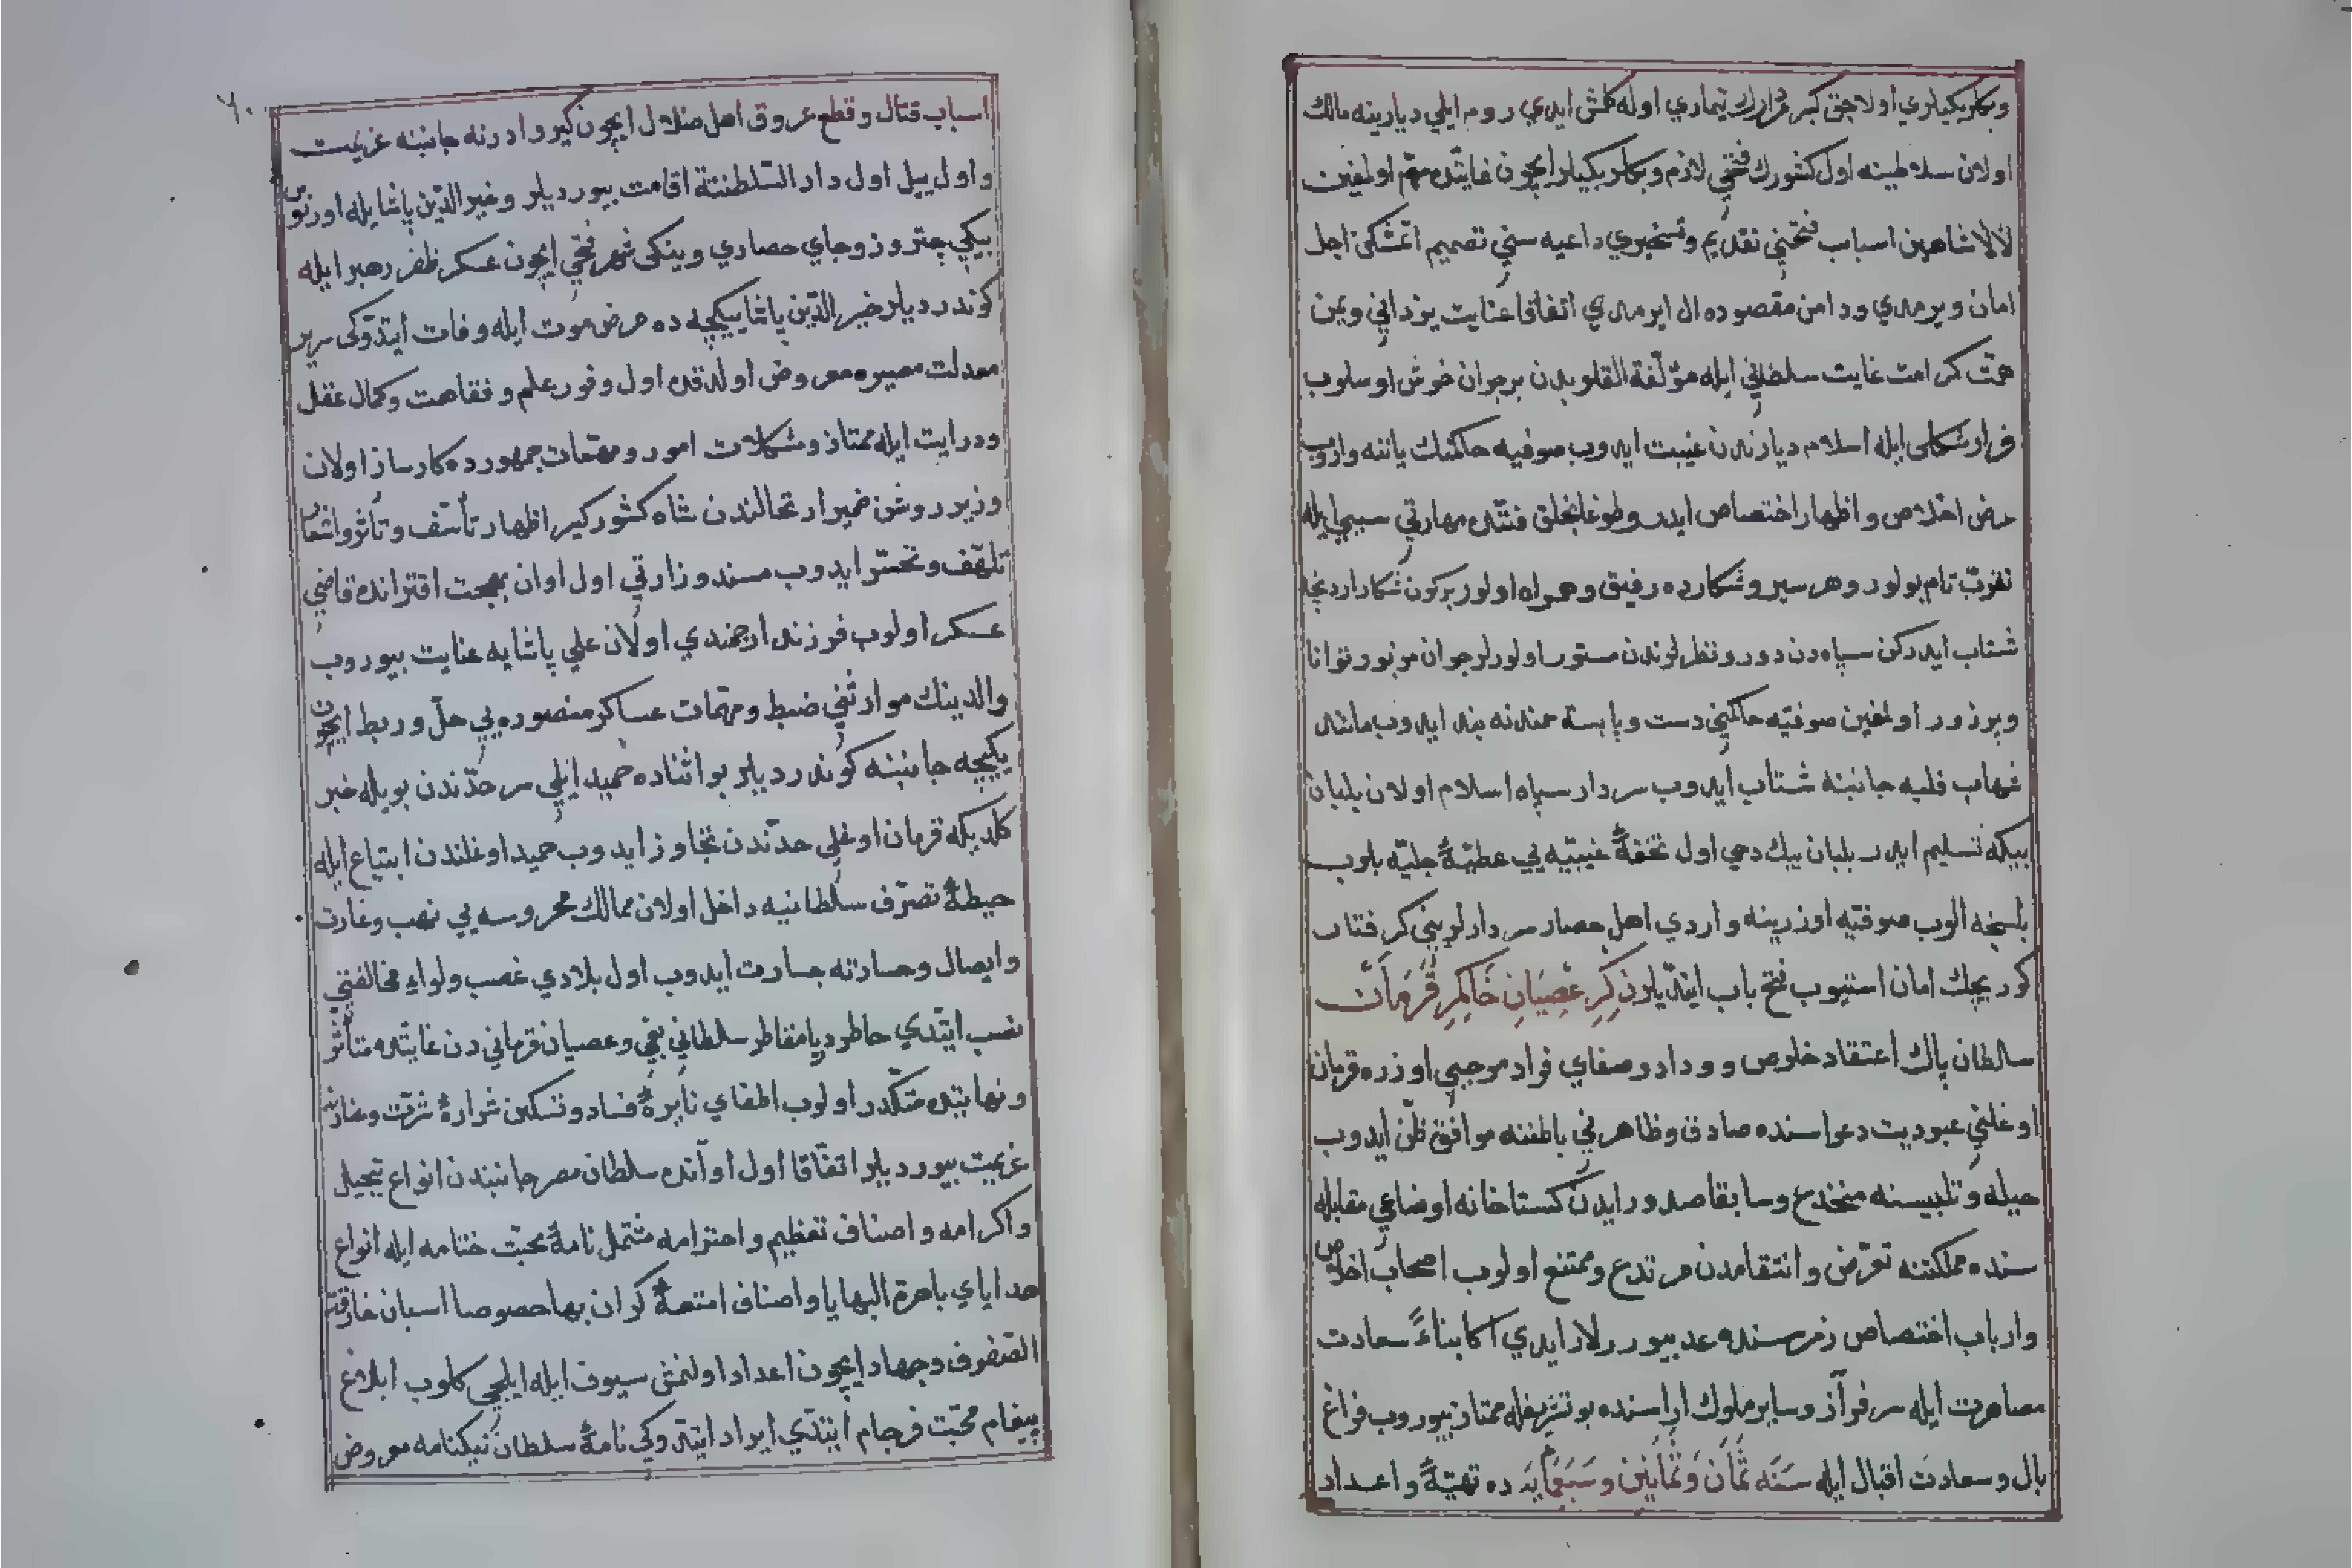 اولان سلاطینه اول کشورك فتحی لازم وبکلربکیلر ایچون غایتده مهم اولمغین
لالا شاهین اسباب فتحنی تقدیم وتسخیری داعیه سنی تصمیم ایتمشکن اجل
امان ویرمدی ودامن مقصوده ال ایرمدی اتفاقا عنایت یزدانی ویمن
همت کرامت غایت سلطانی ایله مؤلّفة القلوبدن بر جوان خوش اوسلوب
فرار شکلی ایله اسلام دیارندن غیبت ایدوب صوفیه حاکمنك یاننه واروب
عرض اخلاص واظهار اختصاص ایدر وطوغانجلق فننده مهارتی سببی ایله
تقرّب تام بولور وهر سیر وشکارده رفیق وهمراه اولور بر کون شکار اردنجه
شتاب ایدرکن سپاهدن دور ونظرلرندن مستور اولورلر جوان مزبور توانا
وپرزور اولمغین صوفیّه حاکمنی دست وپا بسته سمندنه بند ایدوب مانند
شهاب فلبه جانبنه شتاب ایدوب سردار سپاه اسلام اولان بلبان
بیکه تسلیم ایدر بلبان بیك دخی اول تحفهٔ غیبیّه یی عطیّهٔ جلیّه بلوب
بلسنجه الوب صوفیّه اوزرینه واردی اهل حصار سردارلرینی کرفتار
کوریجك امان استیوب فتح باب ایتدیلر ذِکرِ عِصیَانِ حَاکِمِ قَرَمَان
سلطان پاك اعتقاد خلوص وداد وصفای فواد موجبی اوزره قرمان
اوغلنی عبودیت دعواسنده صادق وظاهرنی باطننه موافق ظنّ ایدوب
حیله وتلبیسنه منخدع وسابقا صدور ایدن کستاخانه اوضاعی مقابله
سنده مملکتنه تعرّض وانتقامدن مرتدع وممتنع اولوب اصحاب اخلاص
وارباب اختصاص زمره سنده عد بیوررلر ایدی اکا بناءً سعادت
مصاهرت ایله سرفراز وسایر ملوك اراسنده بو تشریفله ممتاز بیوروب فراغ
بال وسعادت اقبال ایله سَنَه ثَمَان وَثَمَانِین وسَبعَمایَه ده تهیّهٔ واعداد
اسباب قتال وقطع عروق اهل ضلال ایچون کیرو ادرنه جانبنه عزیمت
واول ییل اول دار السّلطنتة اقامت بیوردیلر وخیر الدّین پاشا ایله اورنوس
کوندردیلر خیر الدّین پاشا ییکجه ده مرض موت ایله وفات ایتدوکی سریر
معدلت مصیره معروض اولدقده اول وفور علم وفقاهت وکمال عقل
ودرایت ایله ممتاز ومشکلات امور ومهمّات جمهورده کارساز اولان
وزیر روشن ضمیر ارتحالندن شاه کشورکیر اظهار تأسّف وتأثّر واشعار
تلهّف وتحسّر ایدوب مسند وزارتی اول اوان بهجت اقتراندہ قاضی
عسکر اولوب فرزند ارجمندی اولان علی پاشایه عنایت بیوروب
والدینك مواریثنی ضبط ومهمّات عساکر منصوره یی حلّ وربط ایچون
ییکجه جانبنه کوندردیلر بو اثناده حمید ایلی سرحدّندن بویله خبر
کلدیکه قرمان اوغلی حدّندن تجاوز ایدوب حمید اوغلندن ابتیاع ایله
حیطهٔ تصرّف سلطانیه داخل اولان ممالك محروسه یی نهب وغارت
وایصال وخسارته جسارت ایدوب اول بلادی غصب ولواء مخالفتی
نصب ایتدی خاطر دریا مقاطر سلطانی بغی وعصیان قرمانی دن غایتده متأثّر
ونهایتده متکدّر اولوب اطفای نایرهٔ فساد وتسکین شرارهٔ شرّت وعنادینه
عزیمت بیوردیلر اتفّاقا اول اوانده سلطان مصر جانبندن انواع تبجیل
واکرامه واصناف تعظیم واحترامه مشتمل نامهٔ محبّت ختامه ایله انواع
هدایای باهرة البهایا واصناف امتعهٔ کران بها خصوصا اسبان خارقة
الصّفوف وجهاد ایچون اعداد اولنمش سیوف ایله ایلچی کلوب ابلاغ
پیغام محبّت فرجام ایتدی ایراد ایتدوکی نامهٔ سلطان نیکنامه معروض